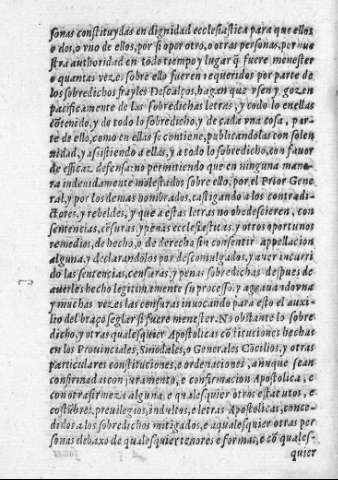 sonas constituydas en dignidad ecclesiastica para que ellos
o dos, o vno de ellos, por si o por otro, o otras personas, por nue
stra authoridad en todo tiempo y lugar q̃ fuere menester
o quantas vezes sobre ello fueren requeridos por parte de
los sobredichos frayles Descalços, hagan que vsen y gozen
pacificamente de las sobredichas letras, y todo lo en ellas
cõtenido, y de todo lo sobredicho, y de cada vna cosa, par-
te de ello, como en ellas se contiene, publicandolas con solen
nidad, y assistiendo a ellas, y a todo lo sobredicho, con fauor
de efficaz defensa: no permitiendo que en ninguna mane-
ra indeuidamente molestados sobre ello, por el Prior Gene
ral, y por los demas nombrados, castigando a los contradi-
ctores, y rebeldes, y que a estas letras no obedescieren, con
sentencias, cẽsuras, y penas ecclesiasticas, y otros oportunos
remedios, de hecho, o de derecho sin consentir appellacion
alguna, y declarandolos por descomulgados, y auer incurri
do las sentencias, censuras, y penas sobredichas despues de
auerles hecho legitimamente su processo, y agrauando vna
y muchas vezes las censuras inuocando para esto el auxi-
lio del braço seglar si fuere menester. No obstante lo sobre
dicho, y otras qualesquier Apostolicas cõstituciones hechas
en los Prouinciales, Sinodales, o Generales Cõcilios, y otras
particulares constituciones, e ordenaciones, aunque sean
confirmadas con juramento, e confirmacion Apostolica, e
con otra firmeza alguna, e qualesquier otros estatutos, e
costũbres, preuilegios, indultos, e letras Apostolicas, conce-
didos a los sobredichos mitigados, e a qualesquier otras per
sonas debaxo de qualesquier tenores e formas, e cõ quales-
quier